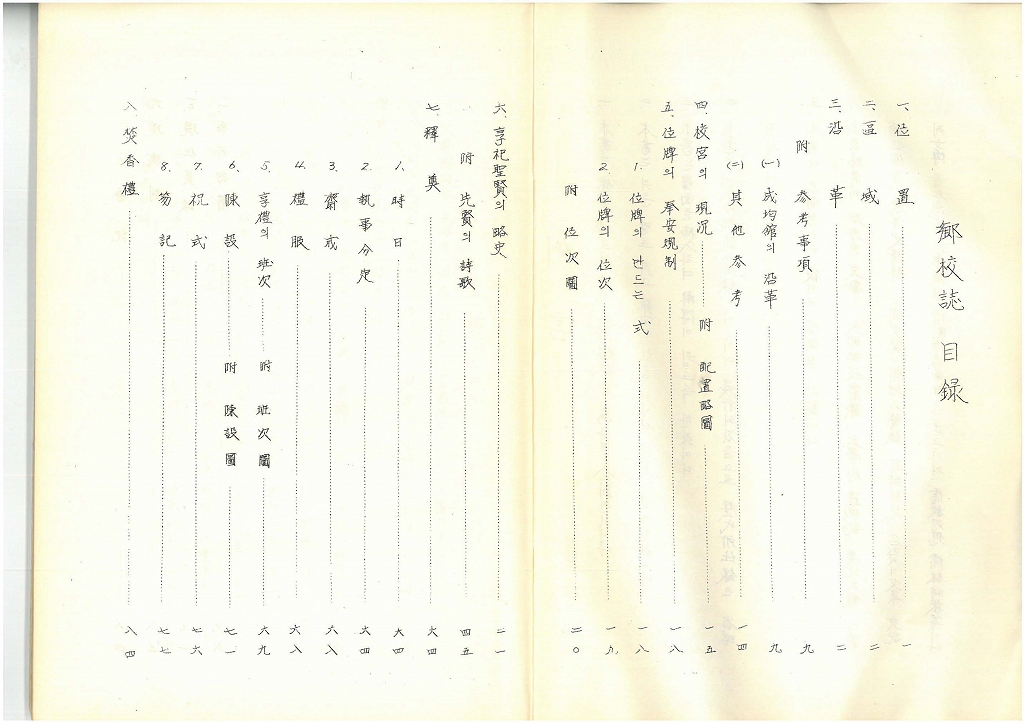 鄕校誌 目録
一、位置 一
二、區域 二
三、沿革 二
附 參考事項 九
(一) 成均館의 沿革 九
(二) 其他參考 一四
四、校宮의 現況 附 配置略圖 一五
五、位牌의 奉安規制 一八
1. 位牌의 만드는 式 一八
2. 位牌의 位次 一九
附 位次圖 二〇
六、享祀聖賢의 略史 二一
附 先賢의 詩歌 四五
七、釋奠 六四
1. 時日 六四
2. 執事分定 六四
3. 齋戒 六八
4. 禮服 六八
5. 享禮의 班次 附 班次圖 六九
6. 陳設 附 陳設圖 七一
7. 祝式 七六
8. 笏記 七七
八、焚香禮 八四